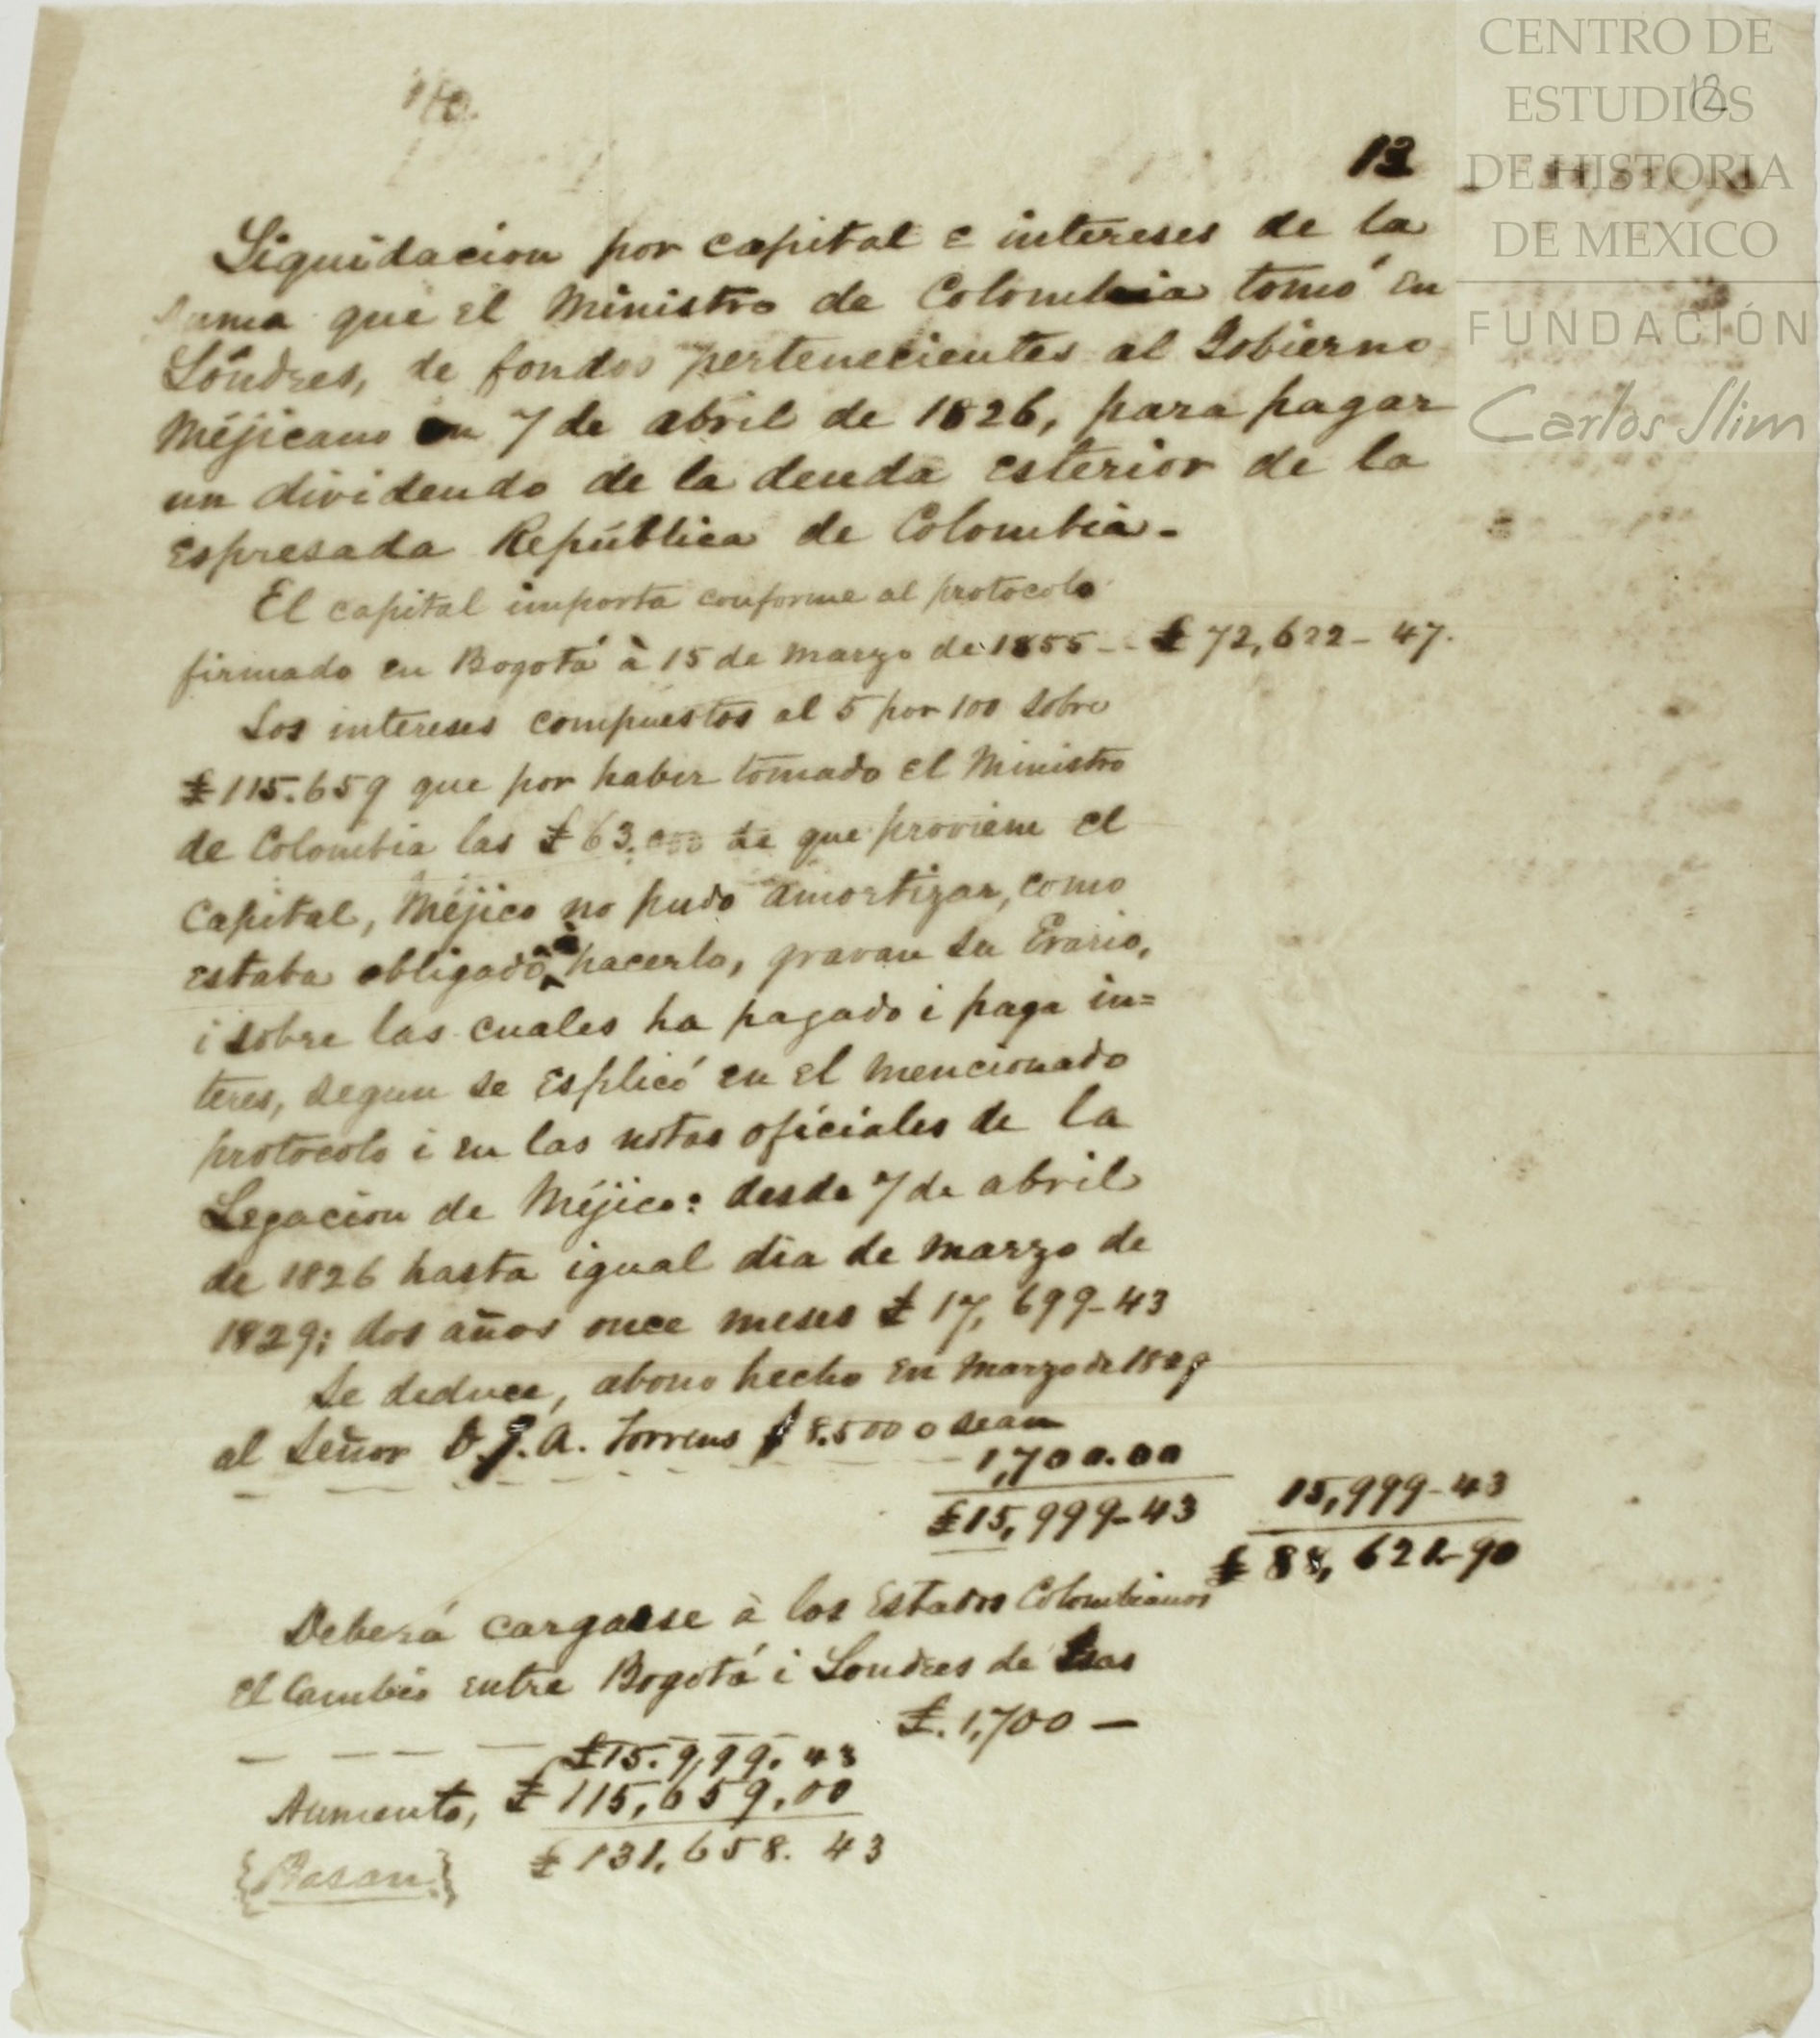 CENTRO DE
ESTUDIOS
DE HISTORIA
DE MEXICO
FUNDACIÓN
Carlos Slim
12
12
Liquidacion por capital e intereses de la
suma que el Ministro de Colombia tomó en
Lóndres, de fondos pertenecientes al Gobierno
Méjicano en 7 de abril de 1826, para pagar
un dividendo de la deuda esterior de la
espresada República de Colombia.
El capital importa conforme al protocolo
firmado en Bogotá à 15 de marzo de 1855 - - £ 72,622- 47.
Los intereses compuestos al 5 por 100 sobre
£ 115.659 que por haber tomado el Ministro
de Colombia las £ 63.000 de que proviene el
Capital, Méjico no pudo amortizar, como
estaba obligado à hacerlo, gravan su Erario,
i sobre las cuales ha pagado i paga in=
teres, segun se esplicó en el mencionado
protocolo i en las notas oficiales de la
Legacion de Méjico: desde 7 de abril
de 1826 hasta igual dia de marzo de
1829; dos años once meses £ 17,699-43
Se deduce, abono hecho en marzo de 1829
al Señor D. J. A. Torrens $ 8.500 o sean
1,700.00
£15,999-43 15,999-43
£ 88,621-90
Deberá cargarse à los Estados Colombianos
el Cambio entre Bogotá i Londres de Esas
£. 1,700 —
£15.999. 43
Aumento, £ 115,659.00
£ 131,658. 43
{Basan}